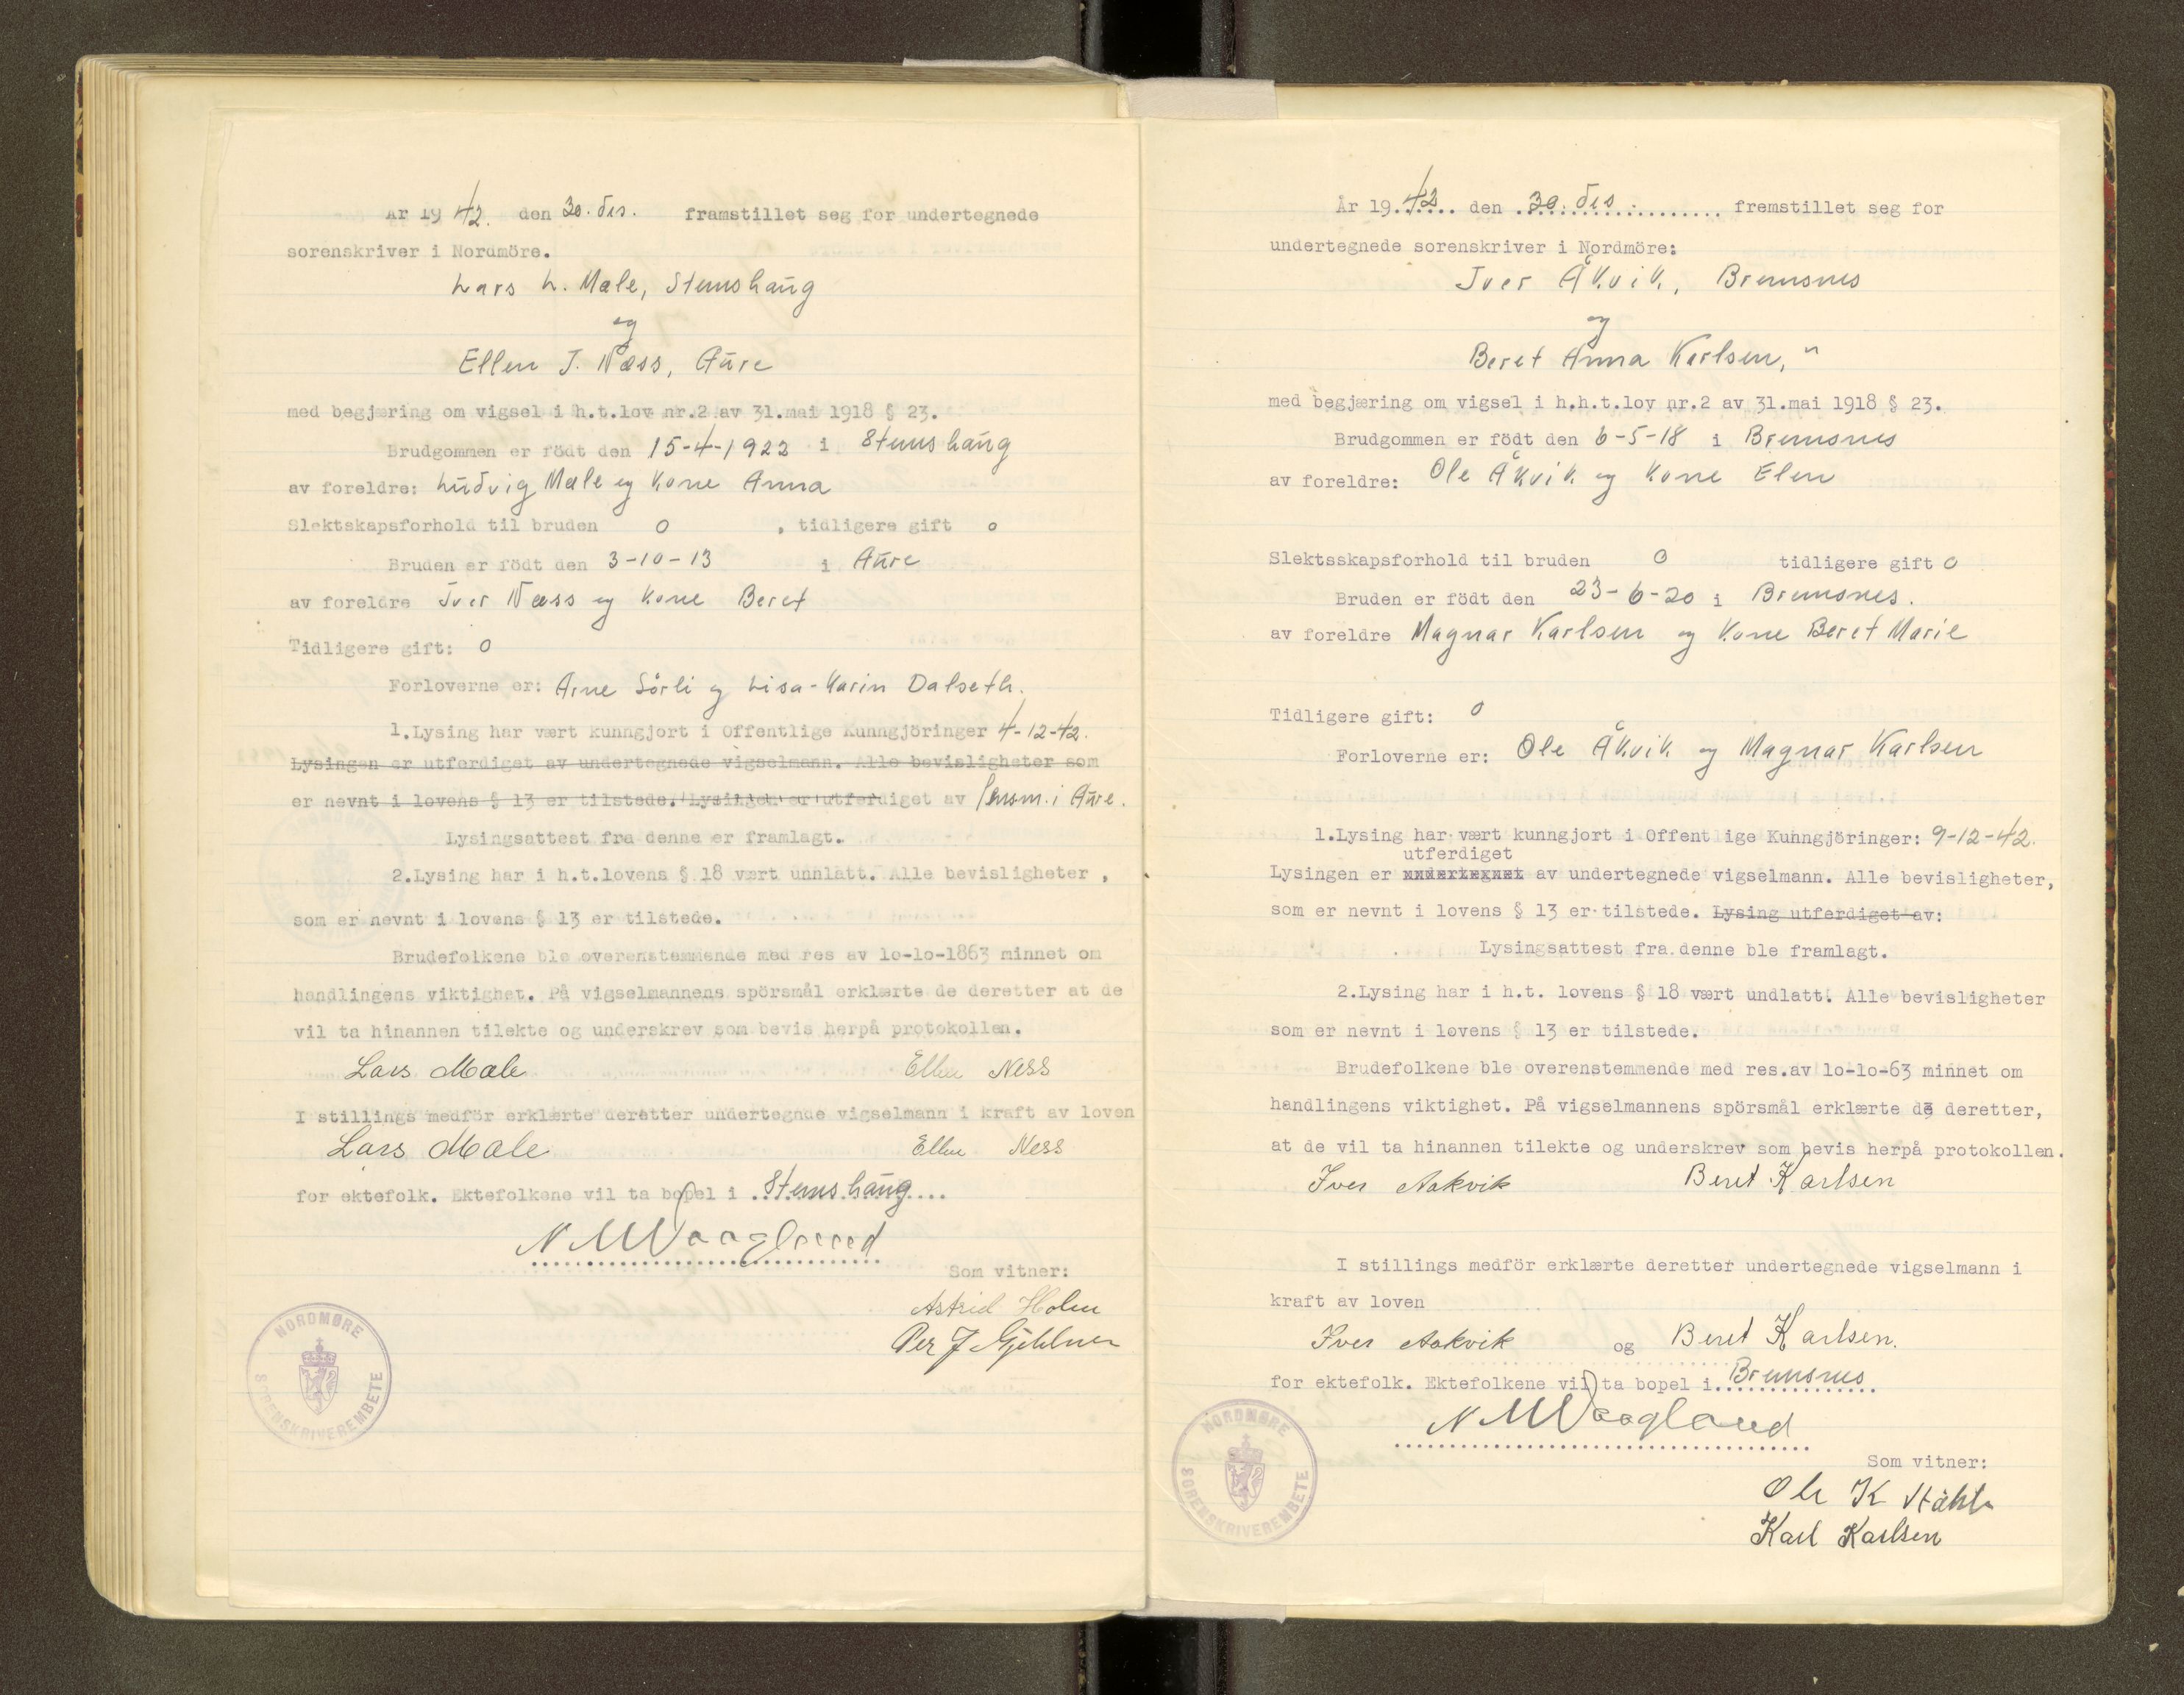 År 19 42. den 30. des. framstillet seg for undertegnede
sorenskriver i Nordmöre.
Lars L. Male, Stemshaug
og
Ellen J. Næss, Aure
med begjæring om vigsel i h.t.lov nr.2 av 31.mai 1918 § 23.
Brudgommen er födt den 15-4-1922 i Stemshaug
av foreldre: Ludvig Male og kone Anna
Slektskapsforhold til bruden 0 , tidligere gift 0
Bruden er födt den 3-10-13 i Aure
av foreldre Iver Næss og kone Beret
Tidligere gift: 0
Forloverne er: Arne Sörli og Lisa-Karin Dalseth.
1.Lysing har vært kunngjort i Offentlige Kunngjöringer 4-12-42.
Lysingen er utferdiget av undertegnede vigselmann. Alle bevisligheter som
er nevnt i lovens § 13 er tilstede. Lysingen er utferdiget av lensm. i Aure.
Lysingsattest fra denne er framlagt.
2.Lysing har i h.t.lovens § 18 vært unnlatt. Alle bevisligheter ,
som er nevnt i lovens § 13 er tilstede.
Brudefolkene ble overenstemmende med res av lo-lo-1863 minnet om
handlingens viktighet. På vigselmannens spörsmål erklærte de deretter at de
vil ta hinannen tilekte og underskrev som bevis herpå protokollen.
Lars Male Ellen Ness
I stillings medför erklærte deretter undertegnde vigselmann i kraft av loven
Lars Male Ellen Ness
for ektefolk. Ektefolkene vil ta bopel i .Stemshaug....
N M Vaagland
Som vitner:
Astrid Holm
Per J
NORDMØRE
SORENSKRIVEREMBETE
År 19.42... den .30. des............ fremstillet seg for
undertegnede sorenskriver i Nordmöre:
Iver Åkvik, Bremsnes
og
Beret Anna Karlsen, "
med begjæring om vigsel i h.h.t.lov nr.2 av 31.mai 1918 § 23.
Brudgommen er födt den 6-5-18 i Bremsnes
av foreldre: Ole Åkvik og kone Elen
Slektsskapsforhold til bruden 0 tidligere gift 0
Bruden er födt den 23-6-20 i Bremsnes.
av foreldre Magnar Karlsen og kone Beret Marie
Tidligere gift: 0
Forloverne er: Ole Åkvik og Magnar Karlsen
1.Lysing har vært kunngjort i Offentlige Kunngjöringer: 9-12-42.
utferdiget
Lysingen er undertegnet av undertegnede vigselmann. Alle bevisligheter,
som er nevnt i lovens § 13 er tilstede. Lysing utferdiget av:
Lysingsattest fra denne ble framlagt.
2.Lysing har i h.t. lovens § 18 vært undlatt. Alle bevisligheter
som er nevnt i lovens § 13 er tilstede.
Brudefolkene ble overenstemmende med res.av lo-lo-63 minnet om
handlingens viktighet. På vigselmannens spörsmål erklærte de deretter,
at de vil ta hinannen tilekte og underskrev som bevis herpå protokollen.
Iver Aakvik Beret Karlsen
I stillings medför erklærte deretter undertegnede vigselmann i
kraft av loven
Iver Aakvik og Beret Karlsen.
for ektefolk. Ektefolkene vil ta bopel i.Bremsnes
N M Vaagland
Som vitner:
Ole K
Karl Karlsen
NORDMØRE
SORENSKRIVEREMBETE